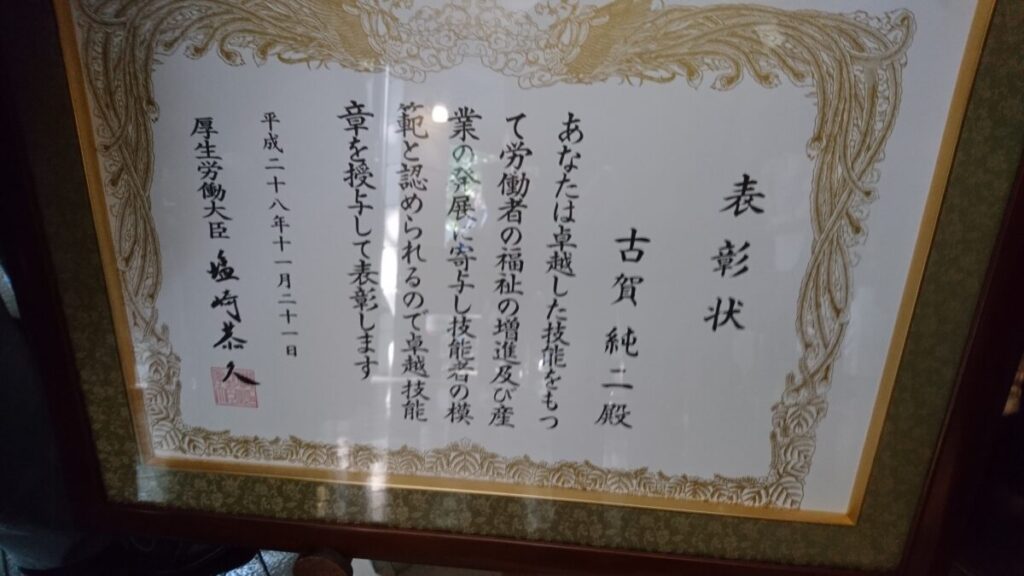 表彰状
古賀純二殿
あなたは卓越した技能をもつ
て労働者の福祉の増進及び産
業の発展に寄与し技能者の模
範と認められるので卓越技能
章を授与して表彰します
平成二十八年十一月二十一日
厚生労働大臣 塩崎恭久